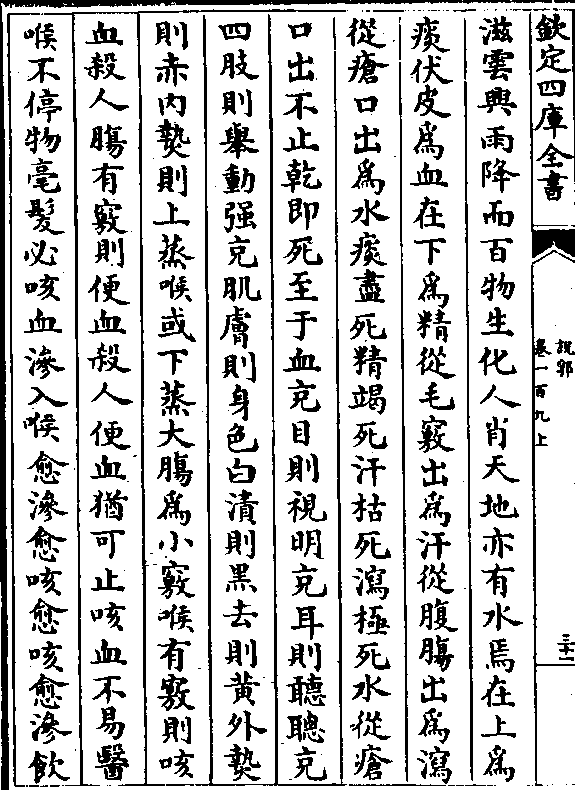 欽定四庫全書
說郛
卷一百九上
三十一
滋雲興雨降而百物生化人肖天地亦有水焉在上為
痰伏皮為血在下為精從毛竅出為汗從腹膓出為瀉
從瘡口出為水痰盡死精竭死汗枯死瀉極死水從瘡
口出不止乾即死至于血充目則視明充耳則聽聰充
四肢則舉動强充肌膚則身色白漬則黑去則黃外𤍠
則赤内𤍠則上蒸喉或下蒸大膓為小竅喉有竅則咳
血殺人膓有竅則便血殺人便血猶可止咳血不易醫
喉不停物毫髮必咳血滲入喉愈滲愈咳愈咳愈滲飲